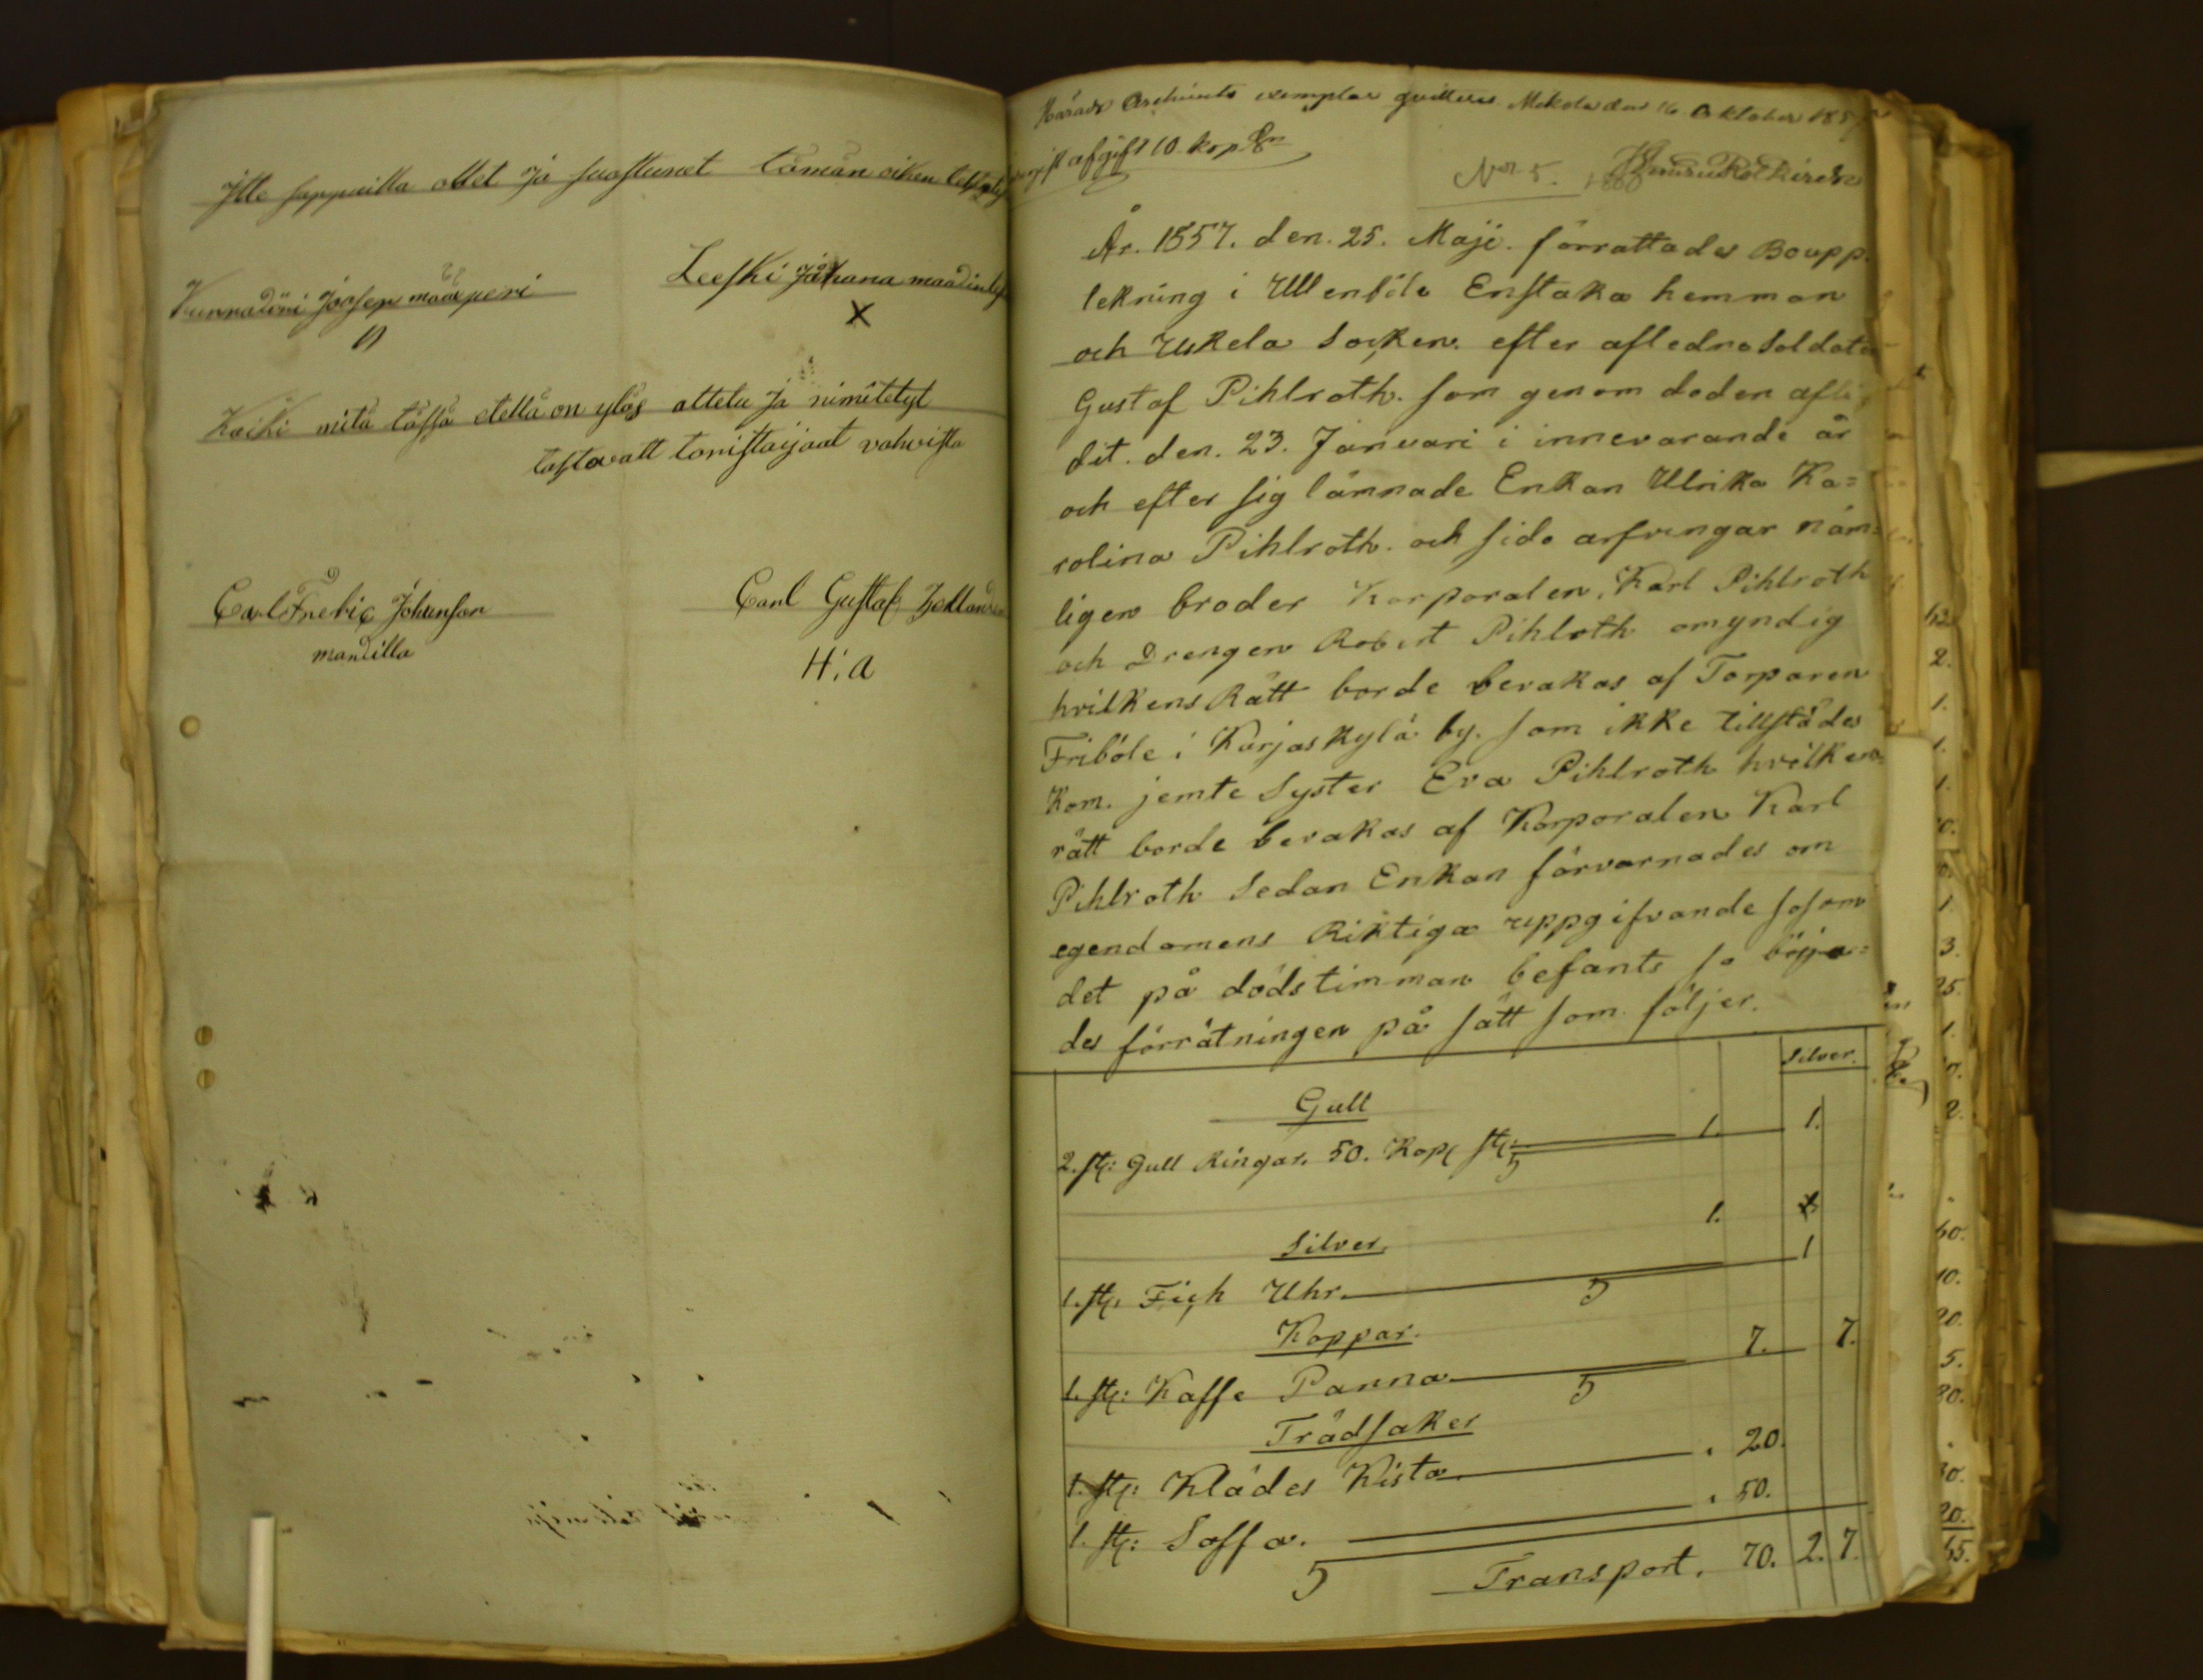 Kunnadöni Joosep
Leeski
X
Kaiki mitä tässä etellä on ylös attetu ja nimitetyt
tastavatt tovistaijaat vahvista
Carl Fredric Johanson
mandilla
Carl Gustaf
H; A
Härads Archivets exemplar qvitteras den 16 Oktober
afgift 10 kop
No 5.
År. 1857. den. 25. Maji. förrattades Boupp.
tekning i Ullenböle Enstaka hemman
och Uskela Socken. efter aflednasoldaten
Gustaf Pihlroth. som genom doden afli,
dit. den. 23. Januari i innevarande år
och efter sig lämnade Enkan Ulrika Ka=
rolina Pihlroth. och sido arfvingar näm=
ligen broder Korporalen, Karl Pihlroth
och Drengen Robert Pihlroth omyndig
hvilkens Rätt borde bevakas af Torparen
Friböle i Karjaskylä by. som ikke tillstädes
Kom. jemte Syster Eva Pihlroth hvilkens
rätt borde bevakas af Korporalen Karl
Pihlroth Sedan Enkan förvarnades om
egendomens Riktiga uppgifvande sosom
det på dödstimman befants so börja=
des förrätningen på sätt som följer.
Silver.
Gull
2. st: Gull Ringar. 50. Kop st: 1. 1.
1.
Silver 1
1. st: Fick Uhr.
Koppar. 7. 7.
1. st: Kaffe Panna
Trädsaker
1. st: Klädes Kista 20.
1. st: Soffa. 50.
Transport. 70. 2. 7.